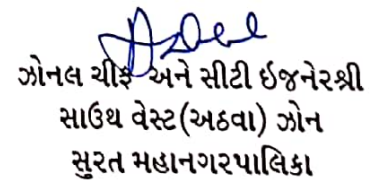 ઝોનલ ચીફ અને સીટી ઇજનેરશ્રી
સાઉથ વેસ્ટ(અઠવા) ઝોન
સુરત મહાનગરપાલિકા